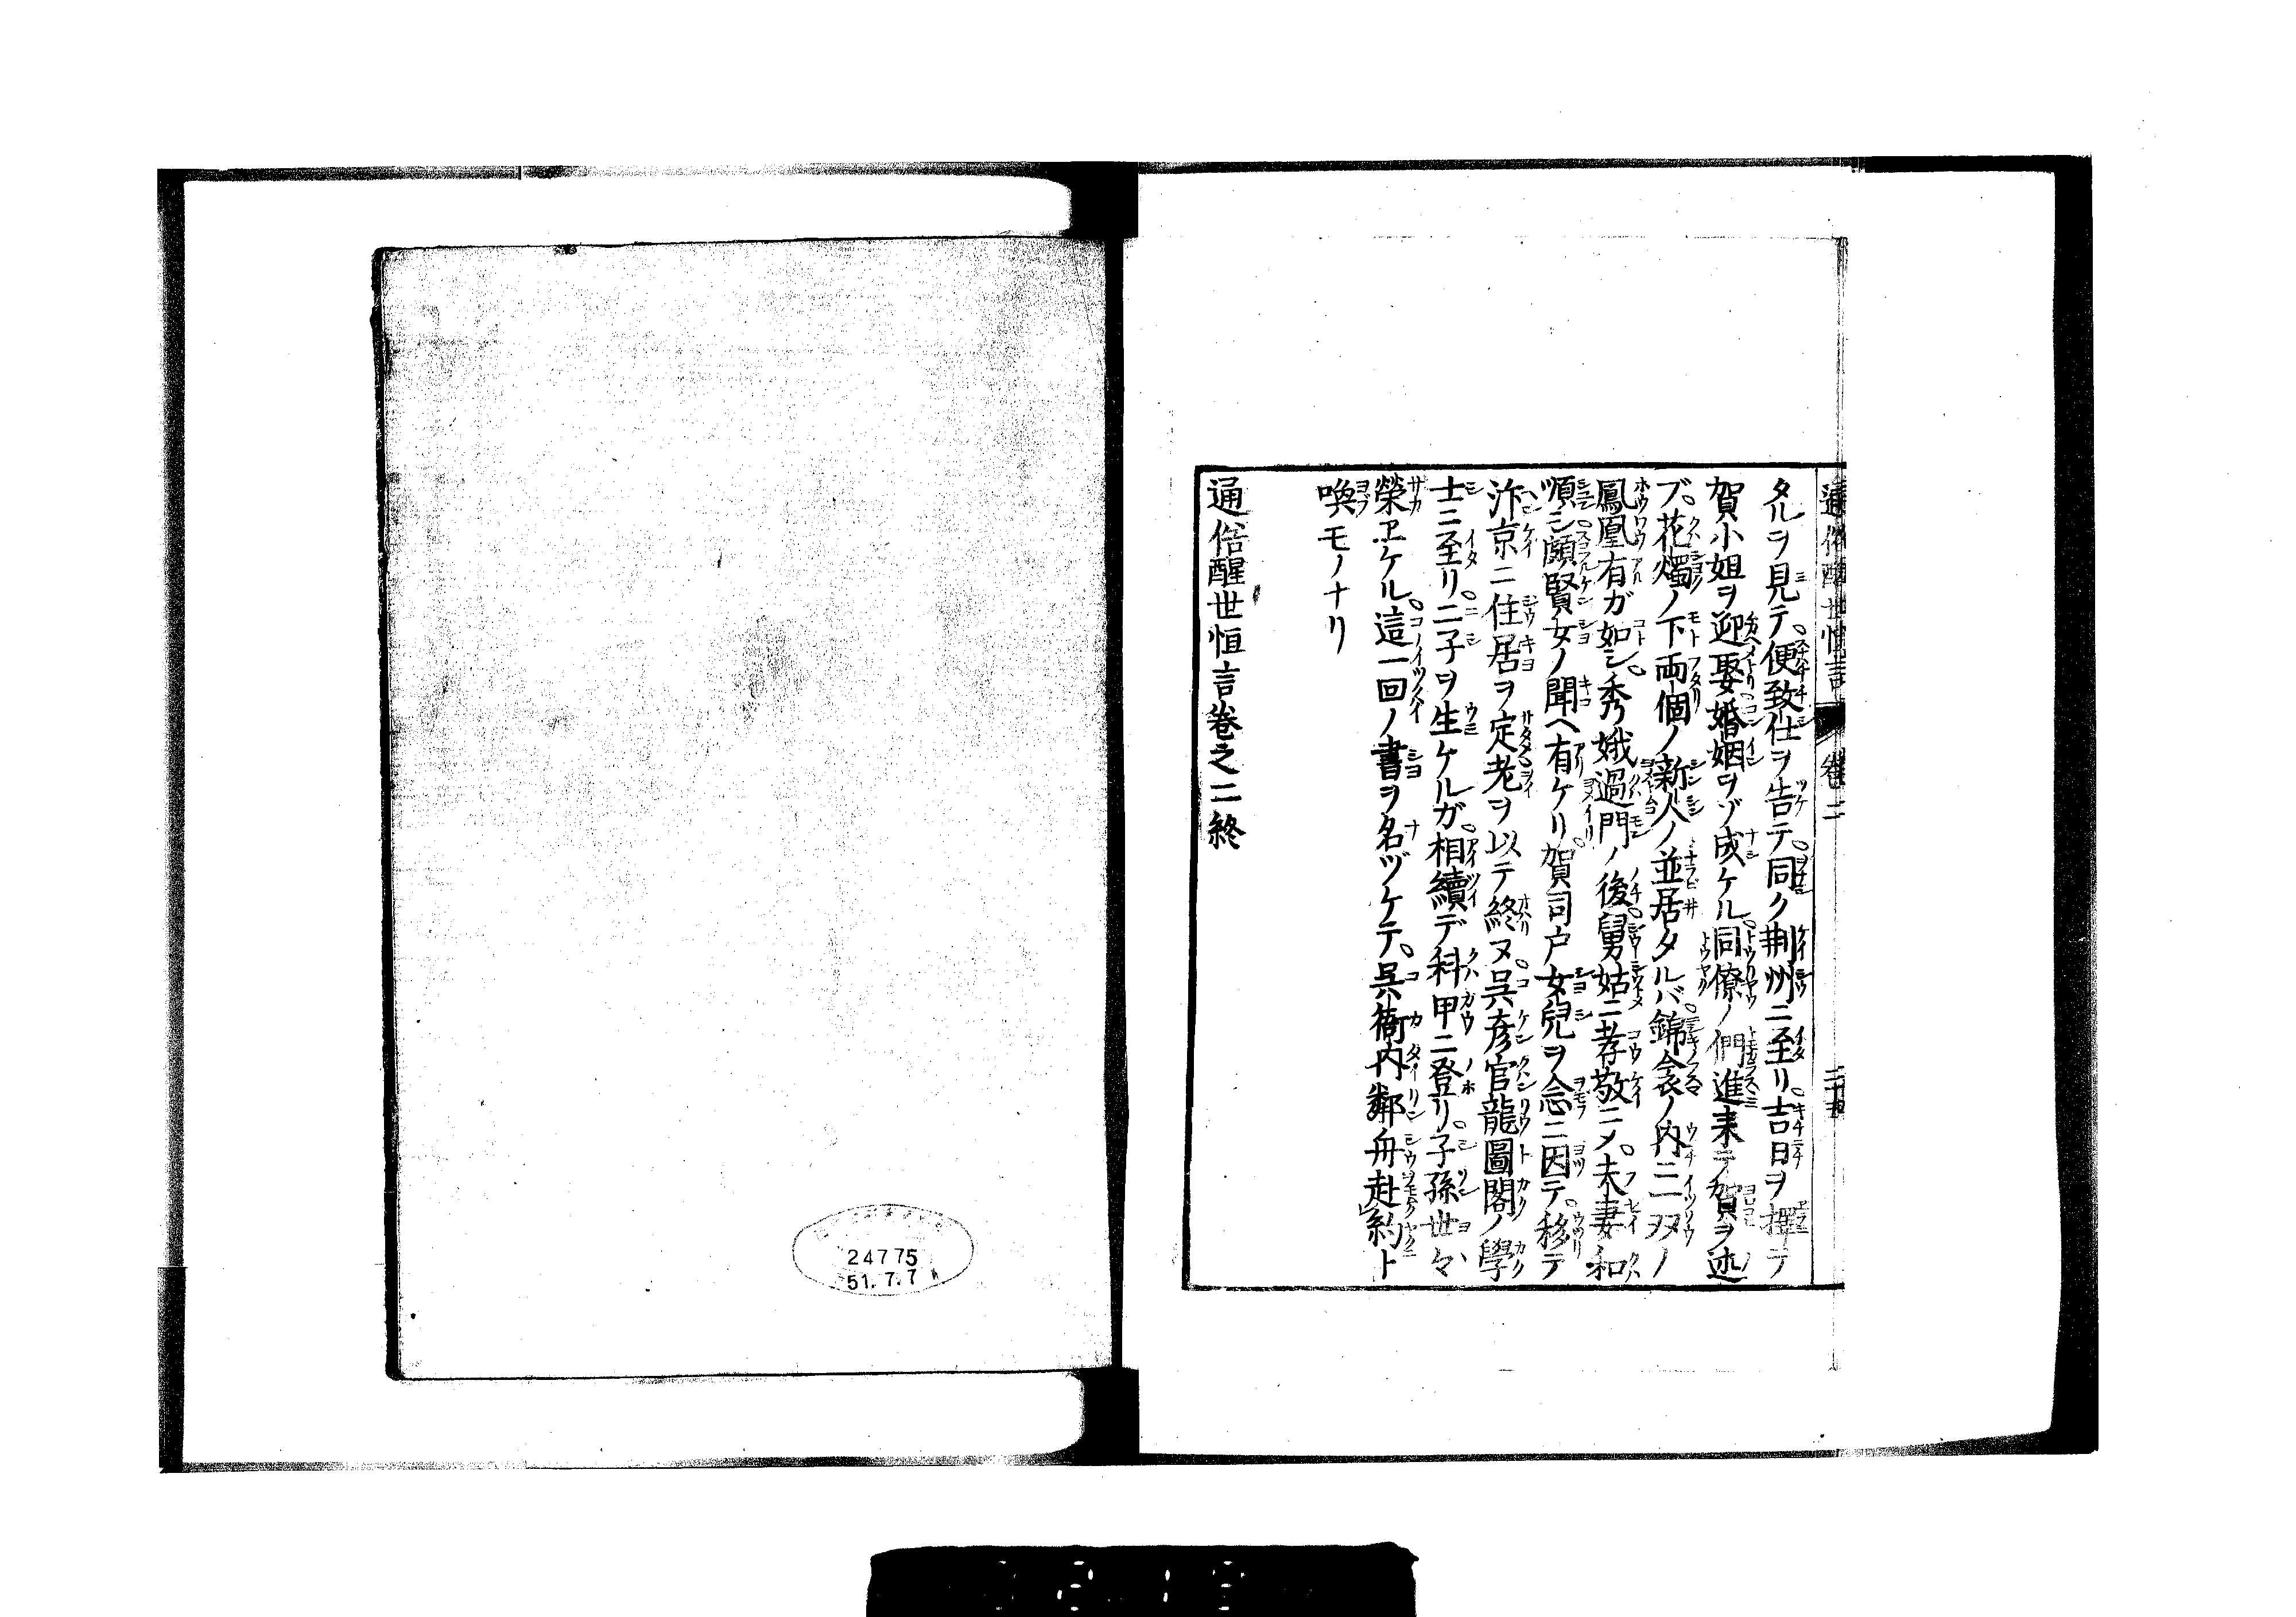 通俗醒世恒言 卷二
タルヲ見テ。便致仕ヲ告テ。同ク荆州ニ至リ。吉日ヲ擇テ
賀小姐ヲ迎娶。婚姻ヲゾ成ケル。同僚ノ們進来テ賀ヲ述
ブ。花燭ノ下両個ノ新人ノ並居タルバ。錦衾ノ内ニ一双ノ
鳳凰有ガ如シ。秀娥過門ノ後。舅姑ニ孝敬ニ〆。夫妻和
順シ。頗賢女ノ聞ヘ有ケリ。賀司戸女兒ヲ念ニ因テ。移テ
汴京ニ住居ヲ定。老ヲ以テ終ヌ。呉彦官龍圖閣ノ學
士ニ至リ。二子ヲ生ケルガ。相續デ科甲ニ登リ。子孫世々
榮ヱケル。這一回ノ書ヲ名ヅケテ。呉衙内鄰舟赴約ト
喚モノナリ
通俗醒世恒言卷之二終
24775
51.7.7